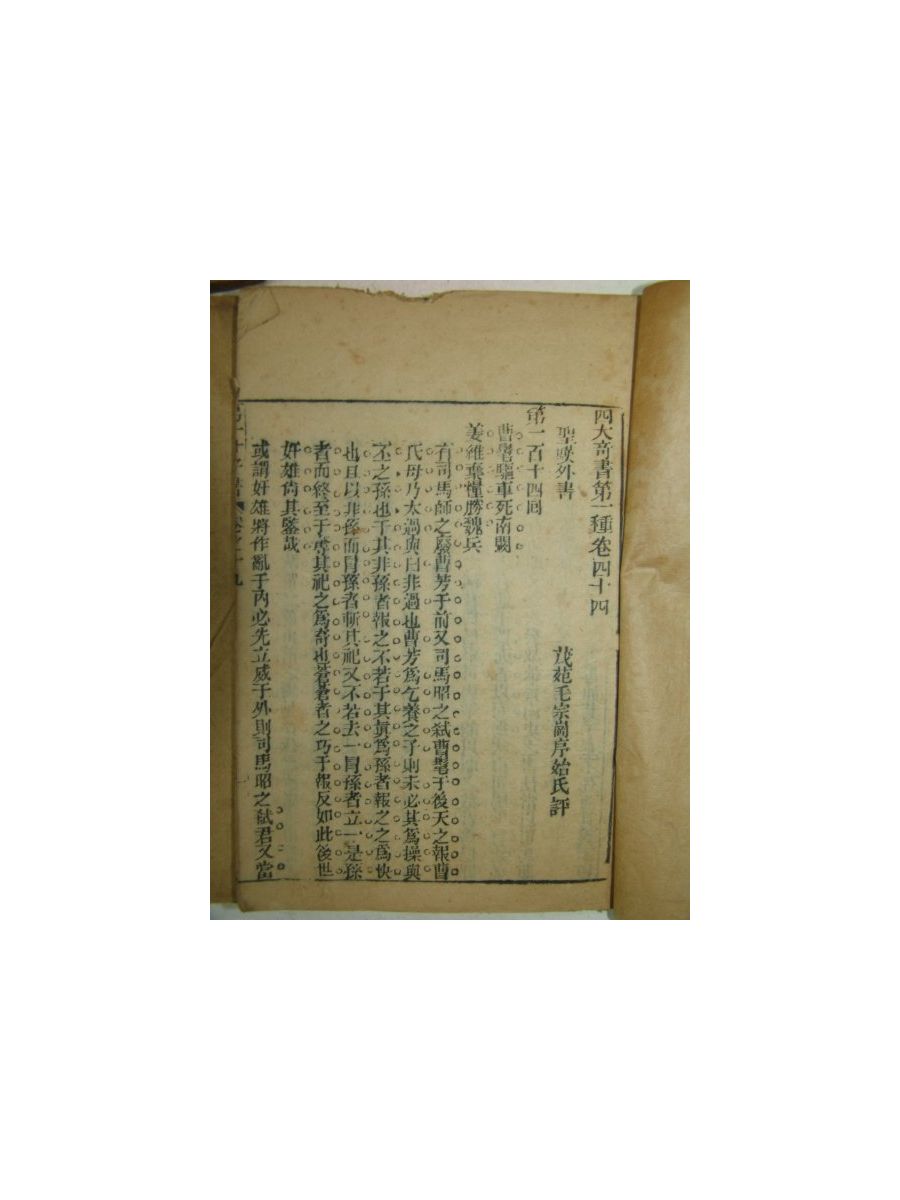 四大奇書第一種卷四十四
聖歎外書
茂苑毛宗崗序始氏評
第一百十四回
曹髦驅車死南闕
姜維棄糧勝魏兵
有司馬師之廢曹芳于前又司馬昭之弒曹髦于後天之報曹
氏毋乃太過與曰非過也曹芳爲乞養之子則未必其爲操與
丕之孫也于其非孫者報之不若于其眞爲孫者報之之爲快
也且以非孫而冒孫者斬其祀又不若去一冒孫者立一是孫
者而終至于奪其祀之爲奇也蒼蒼者之巧于報反如此後世
奸雄尙其鑒哉
或謂奸雄將作亂于內必先立威于外則司馬昭之弒君又當